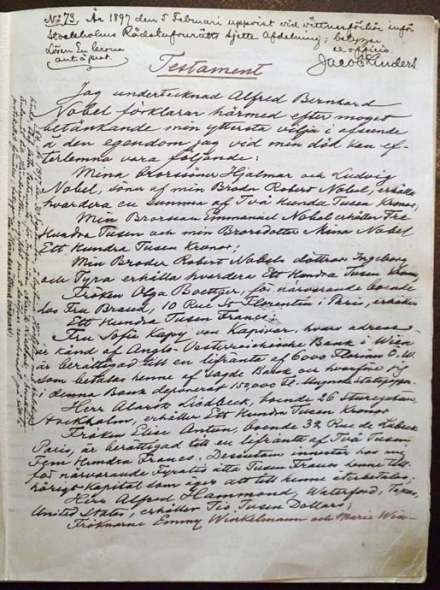 No 73. År 1897 den 5 Februari uppvist vid vittnesförhör inför
Stockholms Rådstufvurätts sjette Afdelning; betygar
Lösen En krona
ex officio.
Jacob Lindert
Testament
Jag undertecknad Alfred Bernhard
Nobel förklarar härmed efter moget
betänkande min yttersta vilja i afseende
å den egendom jag vid min död kan ef-
terlemna vara följande:
Mina Brorsöner Hjalmar och Ludvig
Nobel, söner af min Broder Robert Nobel, erhålla
hvardera en summa af Två Hundra Tusen Kronor;
Min Brorson Emmanuel Nobel erhåller Tre
Hundra Tusen och min Brorsdotter Mina Nobel
Ett Hundra Tusen Kronor;
Min Broder Robert Nobels döttrar Ingeborg
och Tyra erhålla hvardera Ett Hundra Tusen Kronor
Fröken Olga Boettger, för närvarande boende
hos Fru Brand, 10 Rue St Florentin i Paris, erhåller
Ett Hundra Tusen Francs;
Fru Sofie Kapy von Kapivar, hvars adress
är känd af Anglo-Oesterreichische Bank i Wien
är berättigad till en lifränta af 6000 Florins Ö.W.
som betalas henne af sagde Bank och hvarföre jag
i denna Bank deponerat 150,000 Fl. i Ungerska statspapper.
Herr Alarik Liedbeck, boende 26 Sturegatan,
Stockholm, erhåller Ett Hundra Tusen Kronor
Fröken Elise Antun, boende 32 Rue de Lubeck
Paris, är berättigad till en lifränta af Två Tusen
Fem Hundra Francs. Desutom innestår hos mig
för närvarande Fyratio åtta Tusen Francs henne till-
hörigt kapital som äger att till henne återbetalas;
Herr Alfred Hammond, Waterford, Texas,
United States, erhåller Tio Tusen Dollars;
Fröknarne Emmy Winkelmann och Marie Win-